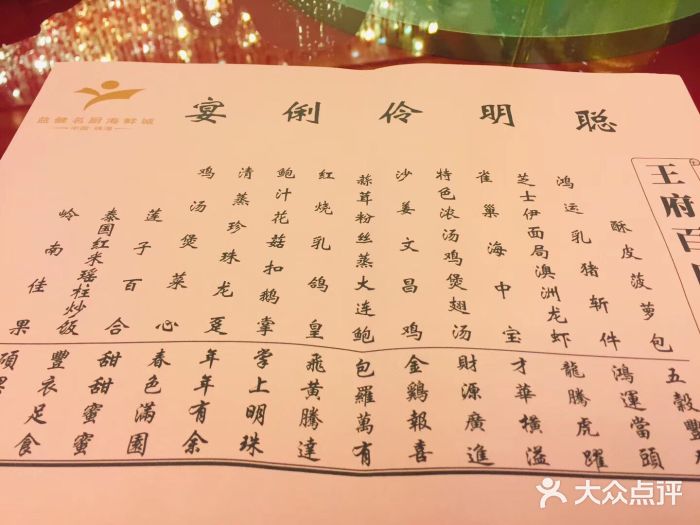 益健名厨海鲜城
中国·珠海
聪明伶俐宴
王府百
酥皮菠萝包
鸿运乳猪斩件
芝士伊面局澳洲龙虾
雀巢海中宝
特色浓汤鸡煲翅汤
沙姜文昌鸡
蒜茸粉丝蒸大连鲍
红烧乳鸽皇
鲍汁花菇扣鹅掌
清蒸珍珠龙趸
鸡汤煲菜心
莲子百合
泰国红米瑶柱炒饭
岭南佳果
五穀豐
鴻運當頭
龍騰虎躍
才華橫溢
財源廣進
金鷄報喜
包羅萬有
飛黃騰達
掌上明珠
年年有余
春色滿園
甜甜蜜蜜
豐衣足食
碩果
大众点评